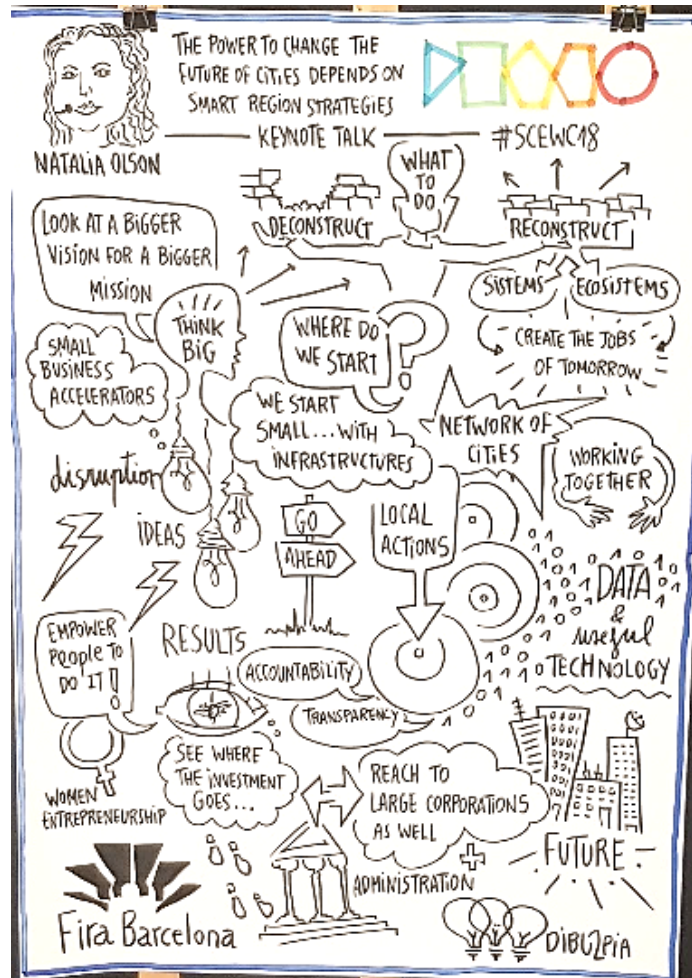 THE POWER TO CHANGE THE
FUTURE OF CITIES DEPENDS ON
SMART REGION STRATEGIES
KEYNOTE TALK
#SCEWC18
NATALIA OLSON
WHAT
TO
DO
DECONSTRUCT
RECONSTRUCT
LOOK AT A BIGGER
VISION FOR A BIGGER
MISSION
SISTEMS
ECOSISTEMS
THINK
BIG
WHERE DO
WE START
CREATE THE JOBS
OF TOMORROW
SMALL
BUSINESS
ACCELERATORS
WE START
SMALL... WITH
INFRASTRUCTURES
NETWORK OF
CITIES
WORKING
TOGETHER
disruption
IDEAS
GO
AHEAD
LOCAL
ACTIONS
DATA
&
useful
TECHNOLOGY
EMPOWER
People TO
DO IT!
RESULTS
ACCOUNTABILITY
TRANSPARENCY
WOMEN
ENTREPRENEURSHIP
SEE WHERE
THE INVESTMENT
GOES...
REACH TO
LARGE CORPORATIONS
AS WELL
+
ADMINISTRATION
FUTURE
Fira Barcelona
DIBU2PIA